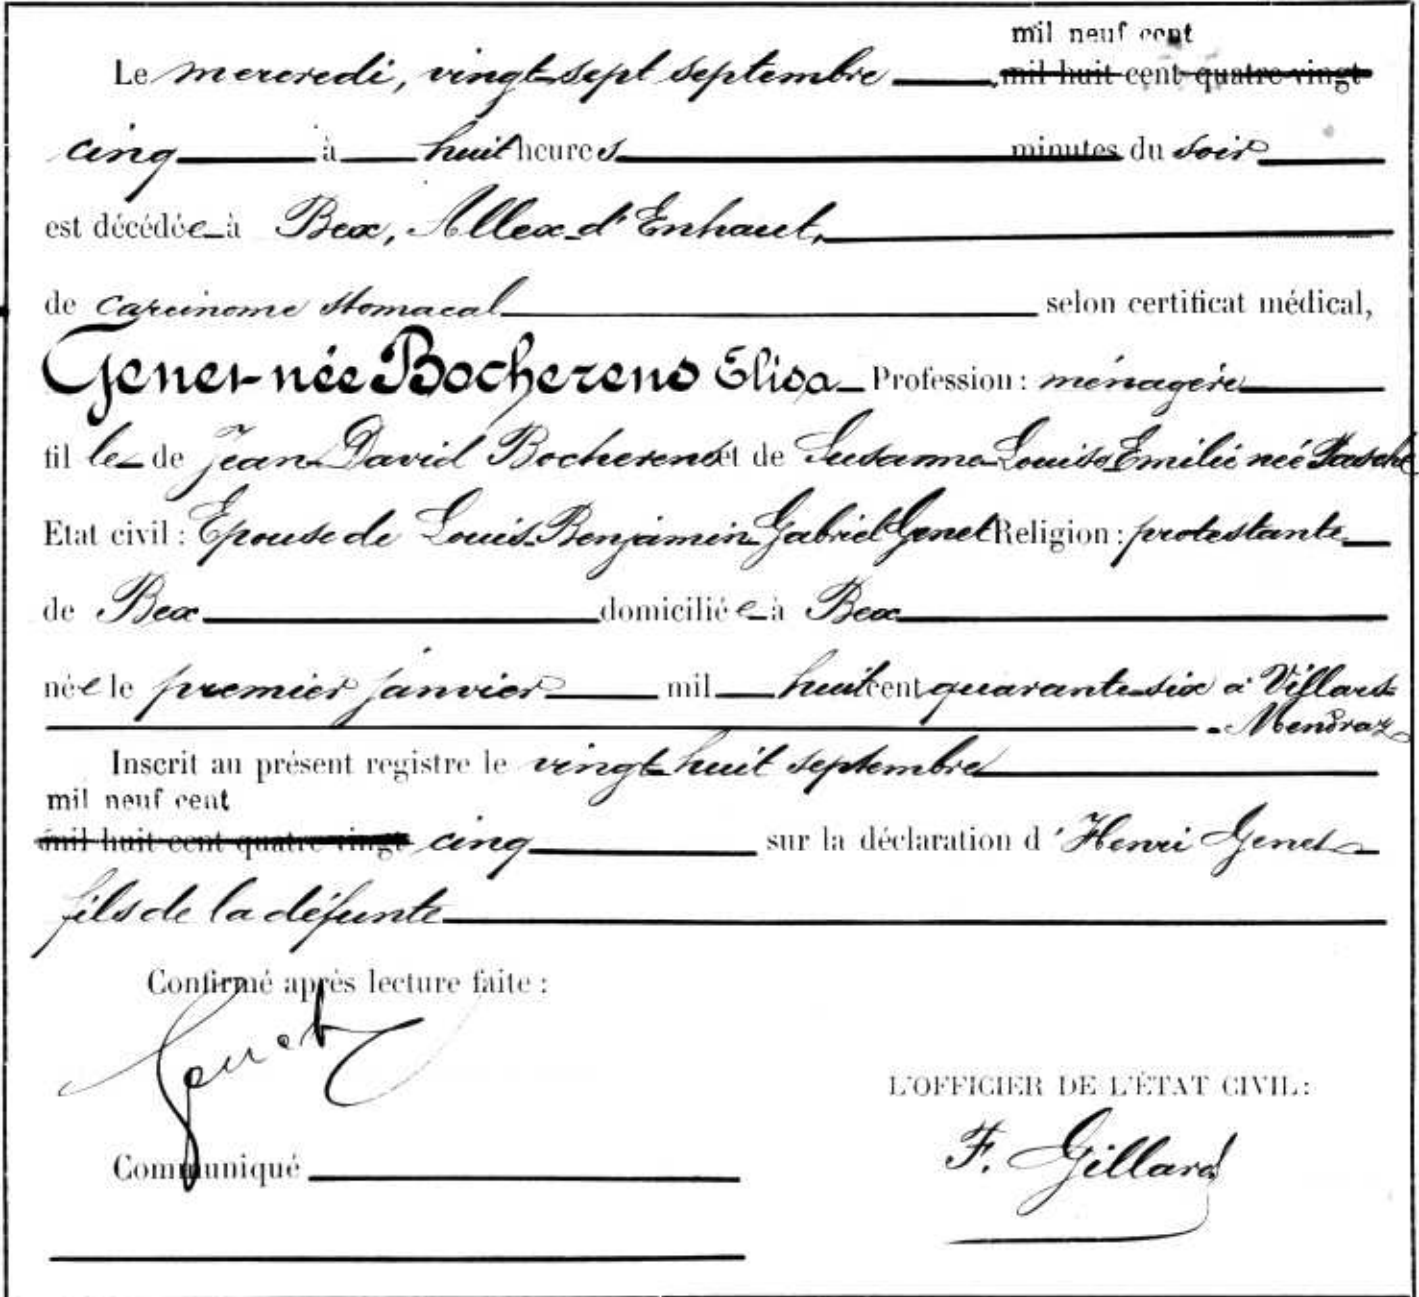 mil neuf cent
Le mercredi, vingt-sept septembre mil huit cent quatre-vingt
cinq à huit heures minutes du soir
est décédée à Bex, Allex-d'Enhaut,
de carcinome stomacal selon certificat médical,
Genet-née Bocherens Elisa Profession : ménagère
fille de Jean-David Bocherens et de Susanne-Louise-Emilie née Pasche
Etat civil : Epouse de Louis-Benjamin-Gabriel Genet Religion : protestante
de Bex domiciliée à Bex
née le premier janvier mil huit cent quarante-six à Villars-
-Mendraz
Inscrit au présent registre le vingt-huit septembre
mil neuf cent
mil huit cent quatre-vingt cinq sur la déclaration d'Henri Genet
fils de la défunte
Confirmé après lecture faite :
Genet
L'OFFICIER DE L'ÉTAT CIVIL :
F. Gillard
Communiqué